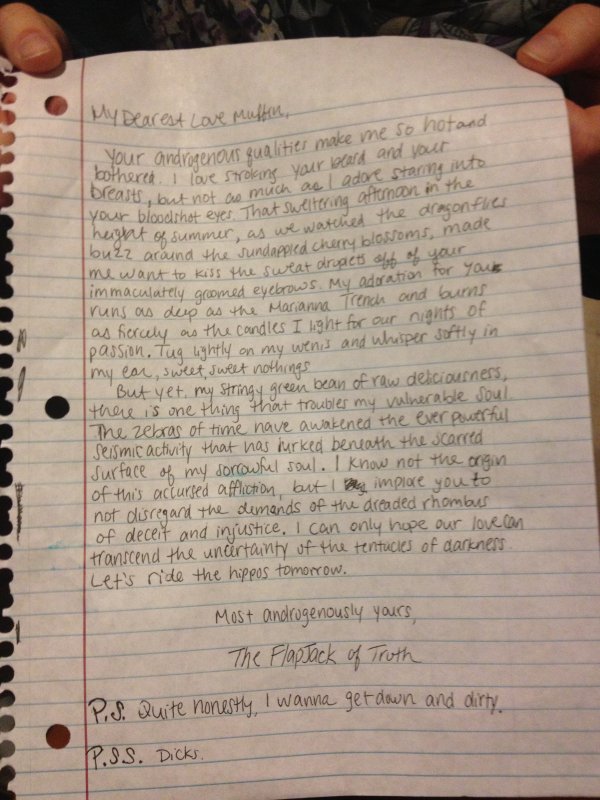 My Dearest Love Muffin,
Your androgenous qualities make me so hot and
bothered. I love stroking your beard and your
breasts, but not as much as I adore staring into
your bloodshot eyes. That sweltering afternoon in the
height of summer, as we watched the dragonflies
buzz around the sundappled cherry blossoms, made
me want to kiss the sweat droplets off of your
immaculately groomed eyebrows. My adoration for you
runs as deep as the Marianna Trench and burns
as fiercely as the candles I light for our nights of
passion. Tug lightly on my wenis and whisper softly in
my ear, sweet, sweet nothings
But yet, my stringy green bean of raw deliciousness,
there is one thing that troubles my vulnerable soul.
The zebras of time have awakened the ever powerful
seismic activity that has lurked beneath the scarred
surface of my sorrowful soul. I know not the origin
of this accursed affliction, but I implore you to
not disregard the demands of the dreaded rhombus
of deceit and injustice. I can only hope our love can
transcend the uncertainty of the tentacles of darkness.
Let's ride the hippos tomorrow.
Most androgenously yours,
The FlapJack of Truth
P.S. Quite honestly, I wanna get down and dirty.
P.S.S. Dicks.